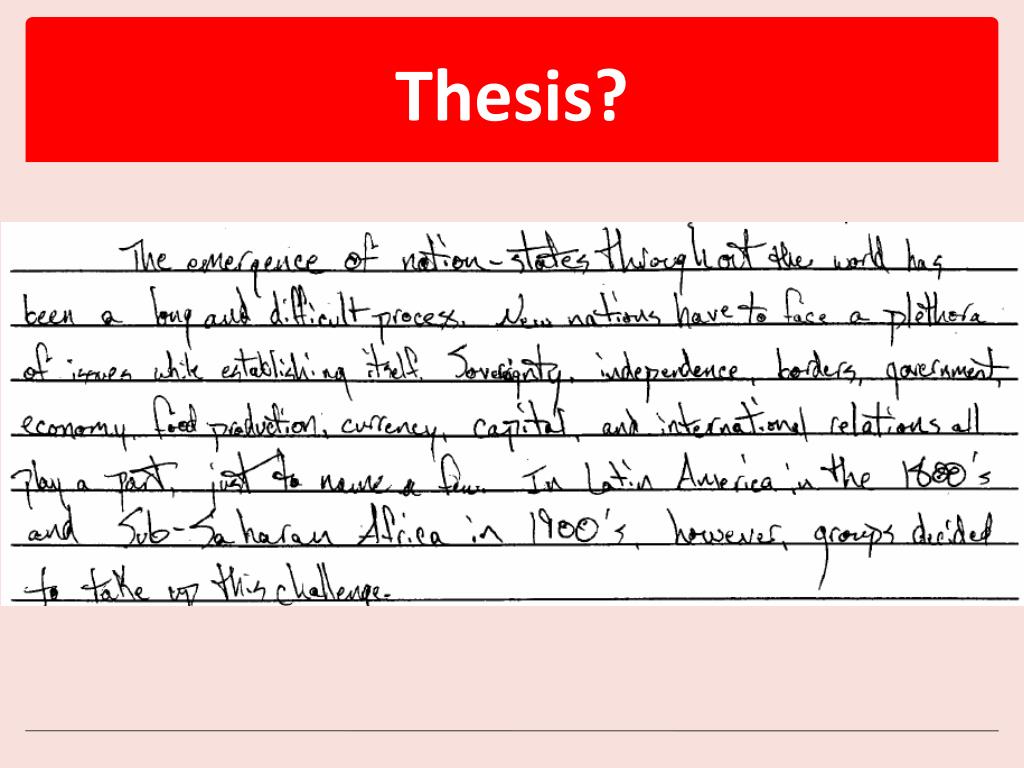 Thesis?
The emergence of nation-states throughout the world has
been a long and difficult process. New nations have to face a plethora
of issues while establishing itself. Sovereignty, independence, borders, government,
economy, food production, currency, capital, and international relations all
play a part, just to name a few. In Latin America in the 1800's
and Sub-Saharan Africa in 1900's, however, groups decided
to take up this challenge.